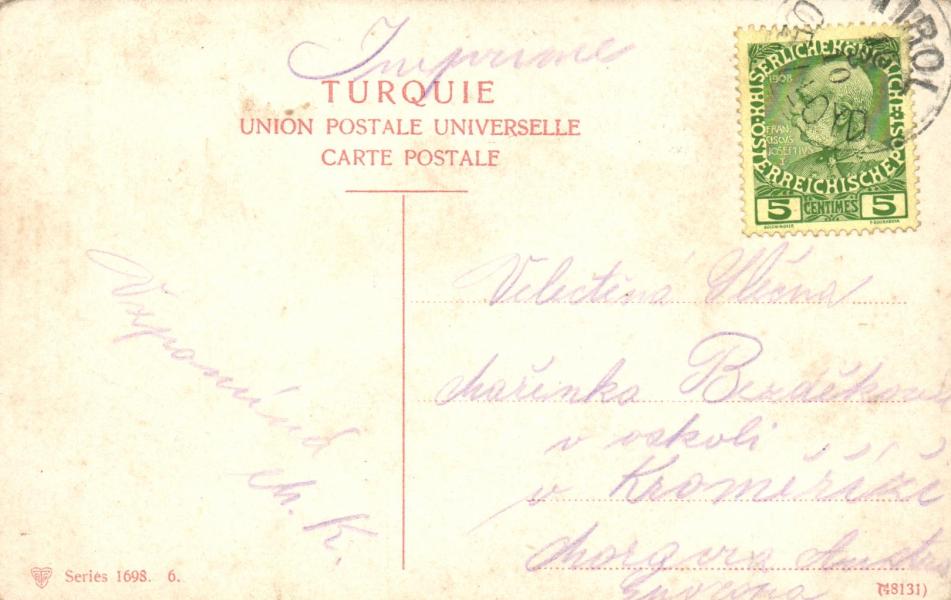 Imprimé
TURQUIE
UNION POSTALE UNIVERSELLE
CARTE POSTALE
KAISERLICHE KÖNIGLICHE ÖSTERREICHISCHE POST
1908
FRAN
CISCUS
JOSEPHUS
I
5 CENTIMES 5
TIROL
Vzpomíná
M. K.
Velectěná Slečna
Mařinka Bezděkova
v
v Kroměříži
Series 1698. 6.
(48131)